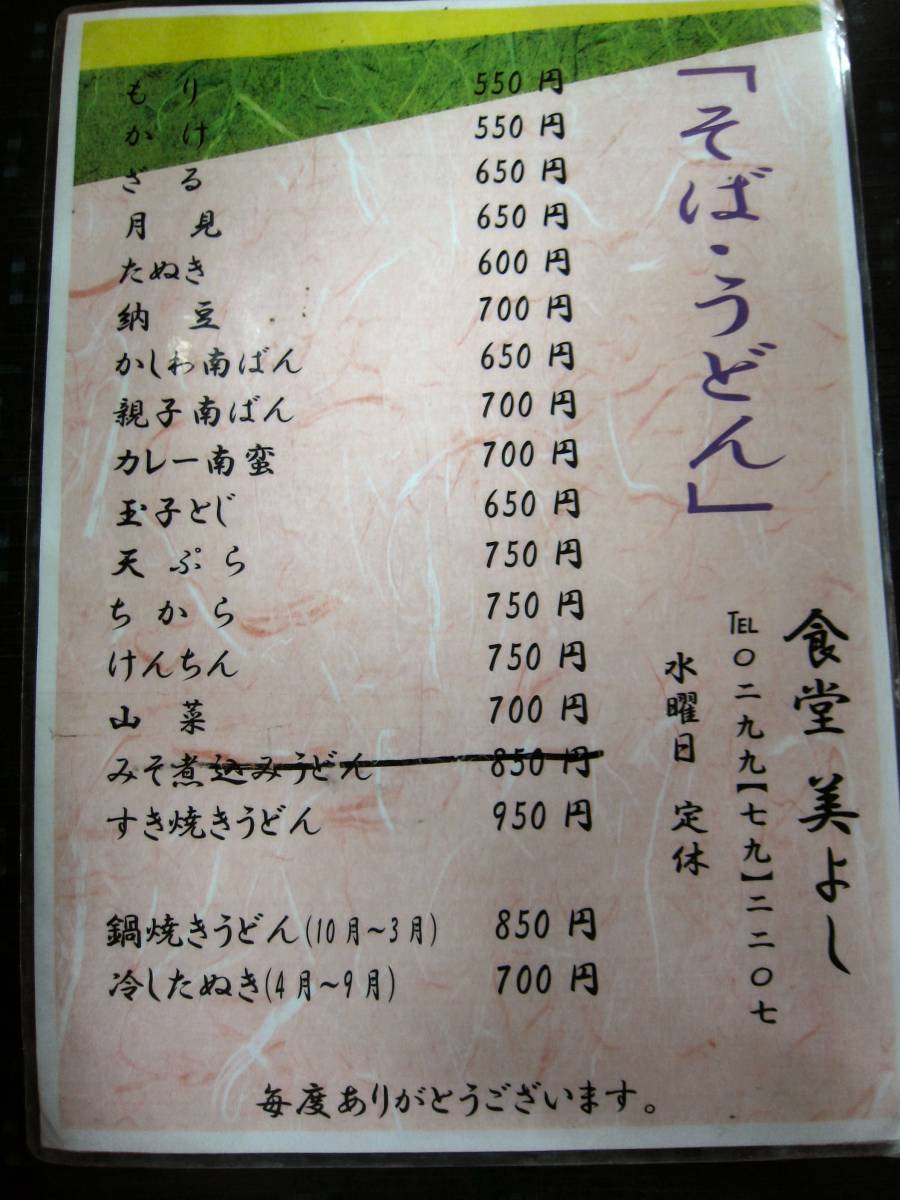 「そば・うどん」
もり 550円
かけ 550円
ざる 650円
月見 650円
たぬき 600円
納豆 700円
かしわ南ばん 650円
親子南ばん 700円
カレー南蛮 700円
玉子とじ 650円
天ぷら 750円
ちから 750円
けんちん 750円
山菜 700円
みそ煮込みうどん 850円
すき焼きうどん 950円
鍋焼きうどん(10月～3月) 850円
冷したぬき(4月～9月) 700円
食堂 美よし
TEL〇二九九】七九】二二〇七
水曜日 定休
毎度ありがとうございます。